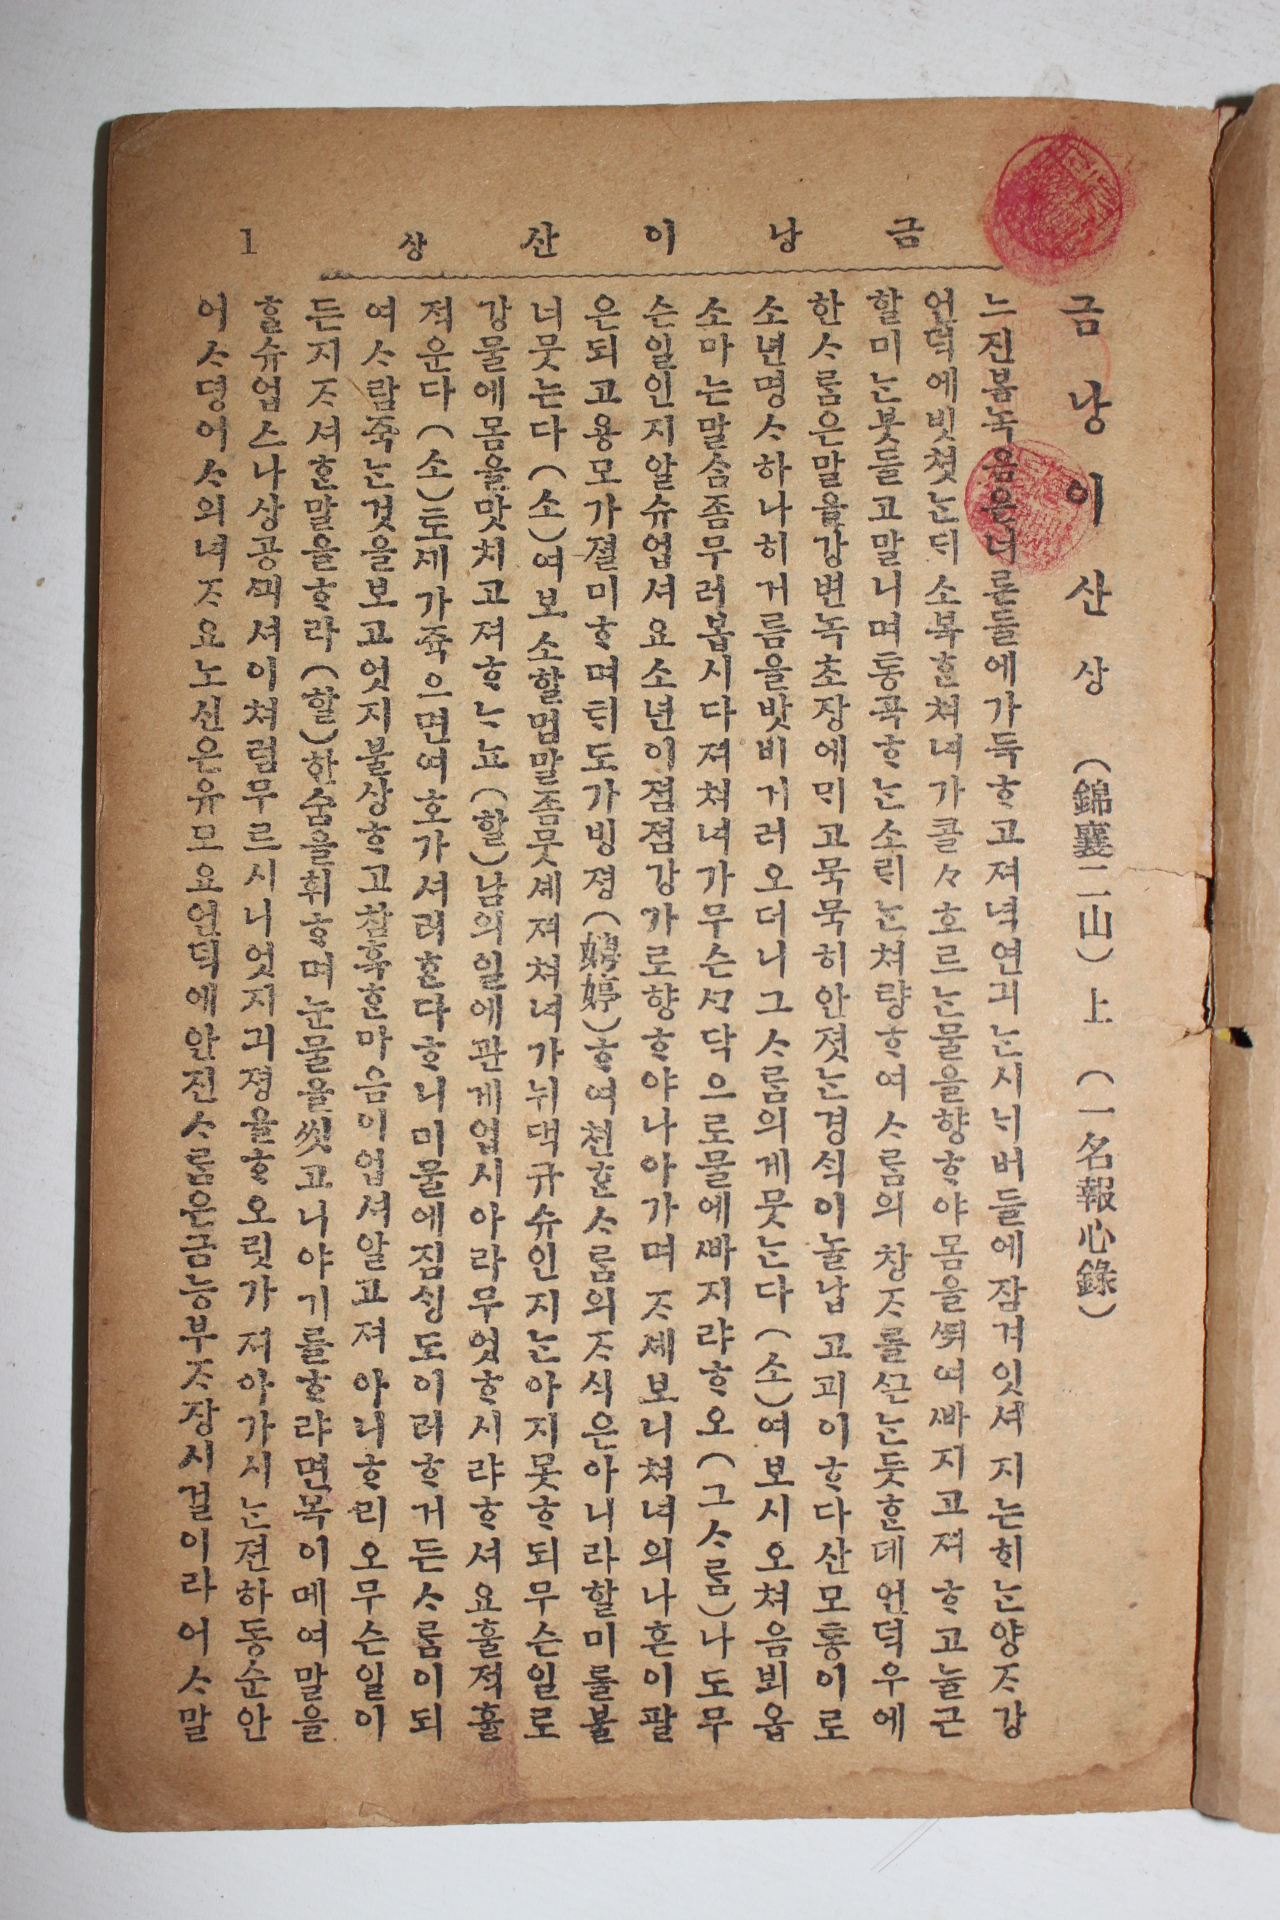 금낭이산 상 1
금낭이산 상 (錦囊二山) 上 (一名報心錄)
느진봄녹음은너른들에가득ᄒᆞ고져녁연긔ᄂᆞᆫ시ᄂᆡ버들에잠겨잇셔 지는ᄒᆡᄂᆞᆫ양ᄌᆞ강
언덕에빗쳣ᄂᆞᆫᄃᆡ 소복ᄒᆞᆫ쳐녀가콸々흐르ᄂᆞᆫ물을향ᄒᆞ야 몸을ᄯᅱ여ᄲᅡ지고져 ᄒᆞ고늘근
할미ᄂᆞᆫ붓들고말니며통곡ᄒᆞᄂᆞᆫ소ᄅᆡᄂᆞᆫ쳐량ᄒᆞ여 ᄉᆞᄅᆞᆷ의 창ᄌᆞ를ᄭᅳᆫᄂᆞᆫ듯ᄒᆞᆫ데언덕우에
한ᄉᆞᄅᆞᆷ은말을강변녹초장에ᄆᆡ고묵묵히안졋ᄂᆞᆫ경ᄉᆡᆨ이놀납고괴이ᄒᆞ다산모통이로
소년명ᄉᆞ하나히거름을밧비거러오더니그ᄉᆞᄅᆞᆷ의게뭇ᄂᆞᆫ다 (소)여보시오쳐음뵈옵
소마는말ᄉᆞᆷ좀무러봅시다져쳐녀가무슨ᄭᆞ닥으로물에ᄲᅡ지랴ᄒᆞ오(그ᄉᆞᄅᆞᆷ)나도무
슨일인지알슈업셔요소년이졈졈강가로향ᄒᆞ야나아가며 ᄌᆞ셰보니쳐녀의나흔이팔
은되고용모가졀미ᄒᆞ며ᄐᆡ도가빙졍(娉婷)ᄒᆞ여쳔ᄒᆞᆫᄉᆞᄅᆞᆷ의ᄌᆞ식은아니라할미를불
너뭇는다 (소)여보소할멈말좀뭇셰져쳐녀가뉘댁규슈인지ᄂᆞᆫ아지못ᄒᆞ되무슨일로
강물에몸을맛치고져ᄒᆞᄂᆞ뇨 (할)남의일에관계업시아라무엇ᄒᆞ시랴ᄒᆞ셔요훌젹훌
젹운다 (소)토세가쥭으면여호가셔러ᄒᆞᆫ다ᄒᆞ니미물에짐ᄉᆡᆼ도이러ᄒᆞ거든ᄉᆞᄅᆞᆷ이되
여ᄉᆞ람쥭ᄂᆞᆫ것을보고엇지불상ᄒᆞ고참혹ᄒᆞᆫ마음이업셔알고져 아니ᄒᆞ리오무슨일이
든지ᄌᆞ셔ᄒᆞᆫ말을ᄒᆞ라 (할)한숨을휘ᄒᆞ며눈물을씻고니야기를ᄒᆞ랴면목이메여말을
ᄒᆞᆯ슈업스나상공ᄭᅴ셔이쳐럼무르시니엇지긔졍을ᄒᆞ오릿가 져아가시ᄂᆞᆫ젼하동순안
어ᄉᆞ뎡어ᄉᆞ의녀ᄌᆞ요노신은유모요언덕에안진ᄉᆞᄅᆞᆷ은금능부ᄌᆞ장시걸이라어ᄉᆞ말